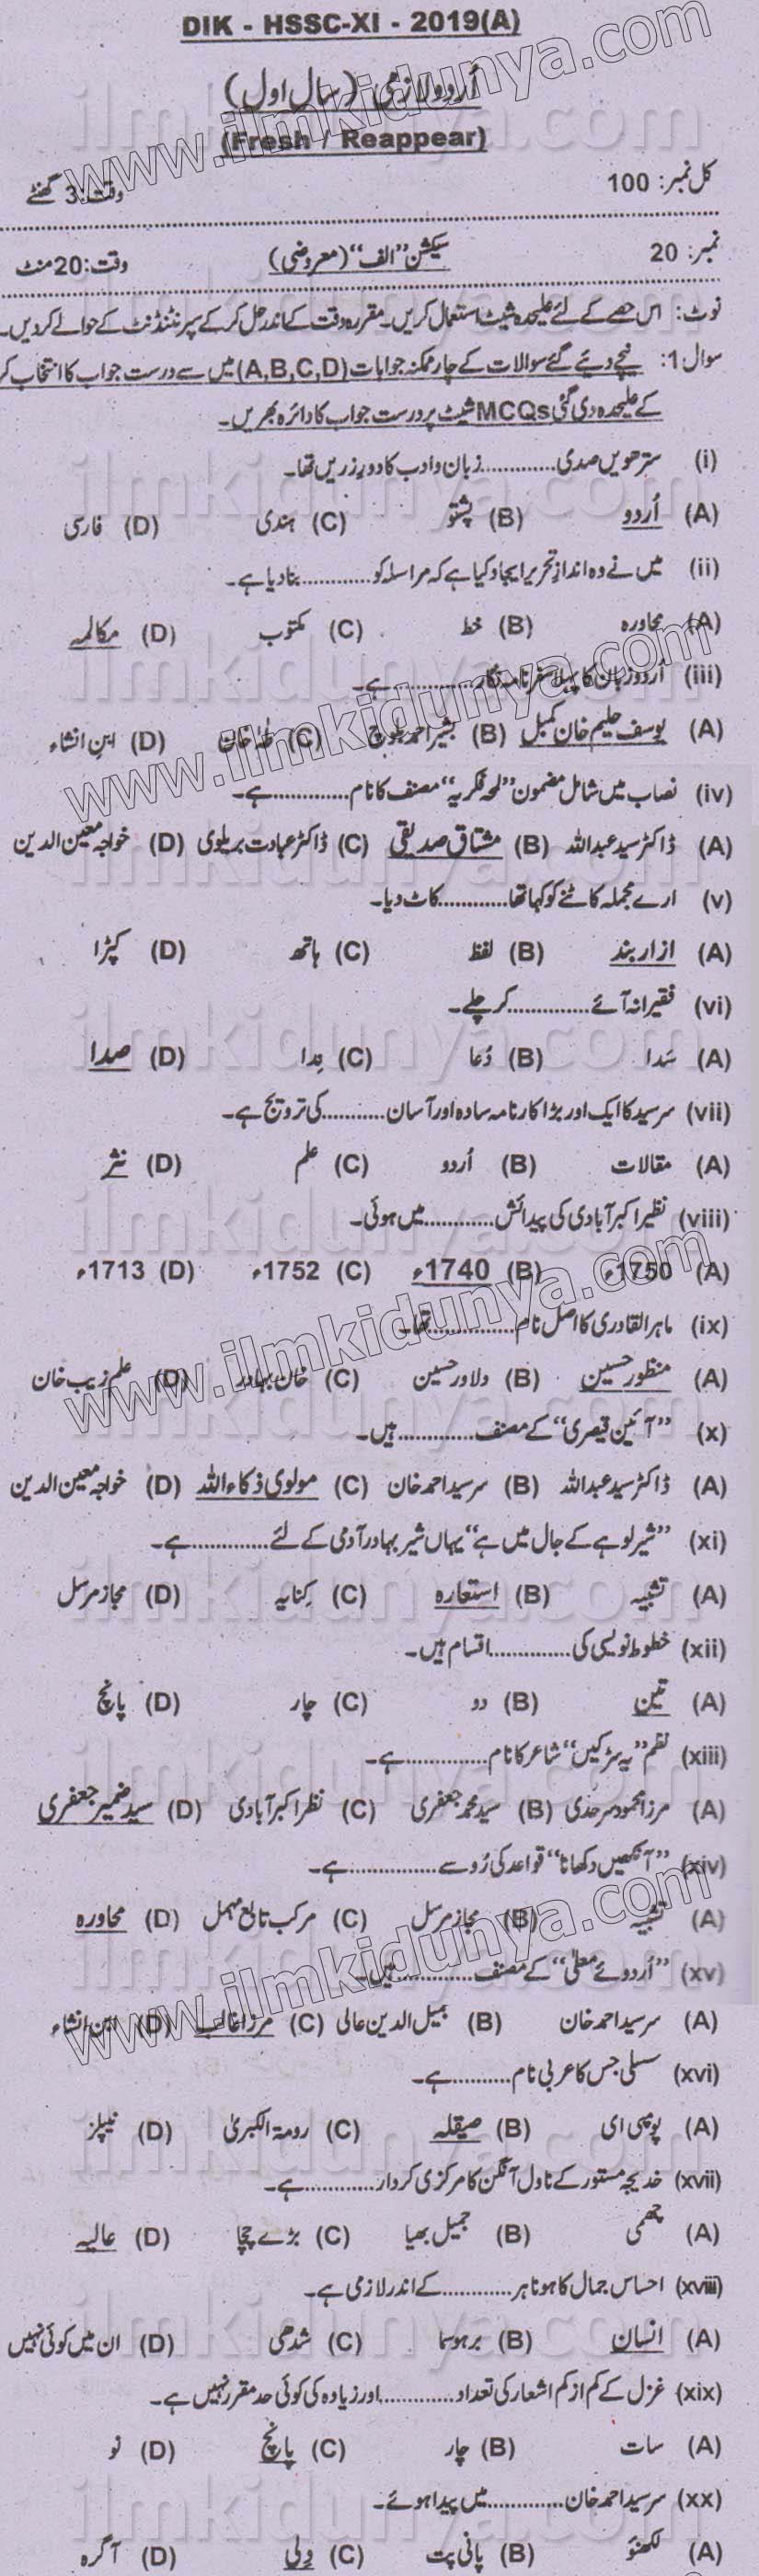 DIK - HSSC-XI - 2019(A)
اُردو لازمی (سال اول)
(Fresh / Reappear)
کل نمبر: 100 وقت: 3 گھنٹے
نمبر: 20 سیکشن "الف" (معروضی) وقت: 20 منٹ
نوٹ: اس حصے کے لئے علیحدہ شیٹ استعمال کریں۔ مقررہ وقت کے اندر حل کر کے سپرنٹنڈنٹ کے حوالے کر دیں۔
سوال 1: نیچے دیئے گئے سوالات کے چار ممکنہ جوابات (A,B,C,D) میں سے درست جواب کا انتخاب کر
کے علیحدہ دی گئی MCQs شیٹ پر درست جواب کا دائرہ بھریں۔
(i) سترھویں صدی ............ زبان و ادب کا دور زریں تھا۔
(A) اُردو (B) پشتو (C) ہندی (D) فارسی
(ii) میں نے وہ انداز تحریر ایجاد کیا ہے کہ مراسلہ کو ............ بنا دیا ہے۔
(A) محاورہ (B) خط (C) مکتوب (D) مکالمہ
(iii) اُردو زبان کا پہلا سفر نامہ نگار ............ ہے۔
(A) یوسف حلیم خان کمبل (B) بشیر احمد بلوچ (C) طٰہٰ خان (D) ابن انشاء
(iv) نصاب میں شامل مضمون "لمحہ فکریہ" مصنف کا نام ............ ہے۔
(A) ڈاکٹر سید عبداللہ (B) مشتاق صدیقی (C) ڈاکٹر عبادت بریلوی (D) خواجہ معین الدین
(v) ارے مجملہ کاٹنے کو کہا تھا ............ کاٹ دیا۔
(A) ازار بند (B) لفظ (C) ہاتھ (D) کپڑا
(vi) فقیرانہ آئے ............ کر چلے۔
(A) سَدا (B) دُعا (C) نِدا (D) صدا
(vii) سرسید کا ایک اور بڑا کارنامہ سادہ اور آسان ............ کی ترویج ہے۔
(A) مقالات (B) اُردو (C) علم (D) نثر
(viii) نظیر اکبر آبادی کی پیدائش ............ میں ہوئی۔
(A) 1750ء (B) 1740ء (C) 1752ء (D) 1713ء
(ix) ماہر القادری کا اصل نام ............ تھا۔
(A) منظور حسین (B) دلاور حسین (C) خان بہادر (D) علم زیب خان
(x) "آئین قیصری" کے مصنف ............ ہیں۔
(A) ڈاکٹر سید عبداللہ (B) سرسید احمد خان (C) مولوی ذکاء اللہ (D) خواجہ معین الدین
(xi) "شیر لوہے کے جال میں ہے" یہاں شیر بہادر آدمی کے لئے ............ ہے۔
(A) تشبیہ (B) استعارہ (C) کنایہ (D) مجاز مرسل
(xii) خطوط نویسی کی ............ اقسام ہیں۔
(A) تین (B) دو (C) چار (D) پانچ
(xiii) نظم "یہ سڑکیں" شاعر کا نام ............ ہے۔
(A) مرزا محمود سرحدی (B) سید محمد جعفری (C) نظر اکبر آبادی (D) سید ضمیر جعفری
(xiv) "آنکھیں دکھانا" قواعد کی رُو سے ............ ہے۔
(A) تشبیہ (B) مجاز مرسل (C) مرکب تابع مہمل (D) محاورہ
(xv) "اُردوئے معلٰی" کے مصنف ............ ہیں۔
(A) سرسید احمد خان (B) جمیل الدین عالی (C) مرزا غالب (D) ابن انشاء
(xvi) سسلی جس کا عربی نام ............ ہے۔
(A) پومپی ای (B) صیقلہ (C) رومۃ الکبریٰ (D) نیپلز
(xvii) خدیجہ مستور کے ناول آنگن کا مرکزی کردار ............ ہے۔
(A) چھمی (B) جمیل بھیا (C) بڑے چچا (D) عالیہ
(xviii) احساس جمال کا ہونا ہر ............ کے اندر لازمی ہے۔
(A) انسان (B) برہوسا (C) شدھی (D) ان میں کوئی نہیں
(xix) غزل کے کم از کم اشعار کی تعداد ............ اور زیادہ کی کوئی حد مقرر نہیں ہے۔
(A) سات (B) چار (C) پانچ (D) نو
(xx) سرسید احمد خان ............ میں پیدا ہوئے۔
(A) لکھنؤ (B) پانی پت (C) دلی (D) آگرہ
www.ilmkidunya.com
ilmkidunya.com